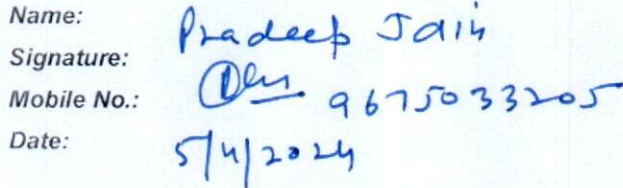 Name: Pradeep Jain
Signature:
Mobile No.: 9675033205
Date: 5/4/2024